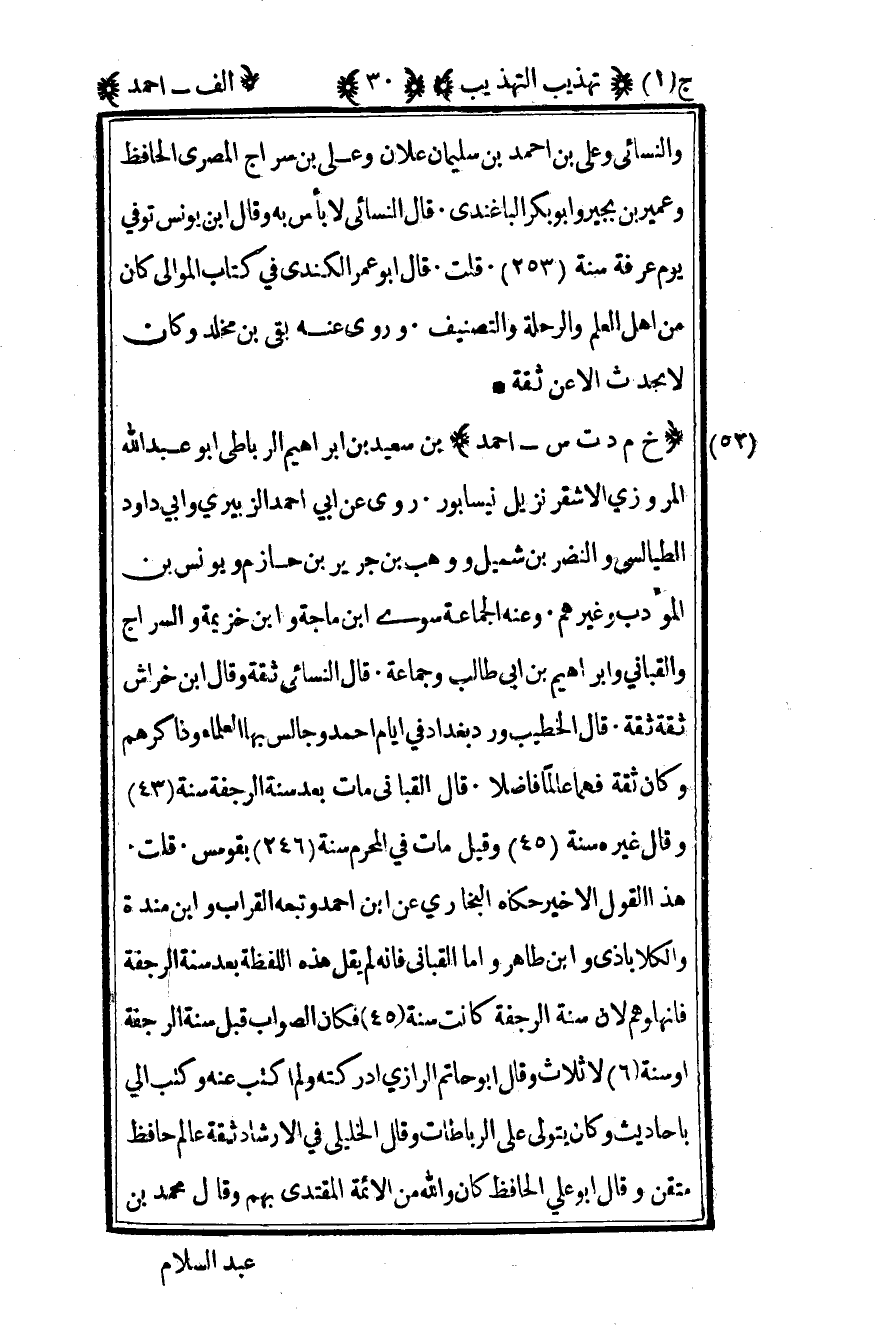 ج(١) ﴿ تهذيب التهذيب ﴾ ﴿ ٣٠ ﴾ ﴿ الف ــ احمد ﴾
والنسائى وعلى بن احمد بن سليمان علان وعلى بن سراج المصرى الحافظ
وعمير بن بجير وابو بكر الباغندى ٠ قال النسائى لا بأس به وقال ابن يونس توفي
يوم عرفة سنة (٢٥٣) ٠ قلت ٠ قال ابو عمر الكندى في كتاب الموالى كان
من اهل العلم والرحلة والتصنيف ٠ وروى عنه بقى بن مخلد وكان
لا يحدث الا عن ثقة •
(٥٣) ﴿ خ م د ت س ــ احمد ﴾ بن سعيد بن ابراهيم الرباطى ابو عبدالله
المروزي الاشقر نزيل نيسابور ٠ روى عن ابي احمد الزبيري وابي داود
الطيالسي والنضر بن شميل ووهب بن جرير بن حازم ويونس بن
المؤدب وغيرهم ٠ وعنه الجماعة سوے ابن ماجة وابن خزيمة والسراج
والقباني وابراهيم بن ابى طالب وجماعة ٠ قال النسائى ثقة وقال ابن خراش
ثقة ثقة ٠ قال الخطيب ورد بغداد في ايام احمد وجالس بها العلماء وذاكرهم
وكان ثقة فهما عالمًا فاضلا ٠ قال القبانى مات بعد سنة الرجفة سنة (٤٣)
وقال غيره سنة (٤٥) وقيل مات في المحرم سنة (٢٤٦) بقومس ٠ قلت ٠
هذا القول الاخير حكاه البخاري عن ابن احمد وتبعه القراب وابن مندة
والكلاباذى وابن طاهر واما القبانى فانه لم يقل هذه اللفظة بعد سنة الرجفة
فانها وهم لان سنة الرجفة كانت سنة (٤٥) فكان الصواب قبل سنة الرجفة
او سنة (٦) لا ثلاث وقال ابو حاتم الرازي ادركته ولم اكتب عنه وكتب الي
باحاديث وكان يتولى على الرباطات وقال الخليلى في الارشاد ثقة عالم حافظ
متقن وقال ابو علي الحافظ كان والله من الائمة المقتدى بهم وقال محمد بن
عبد السلام